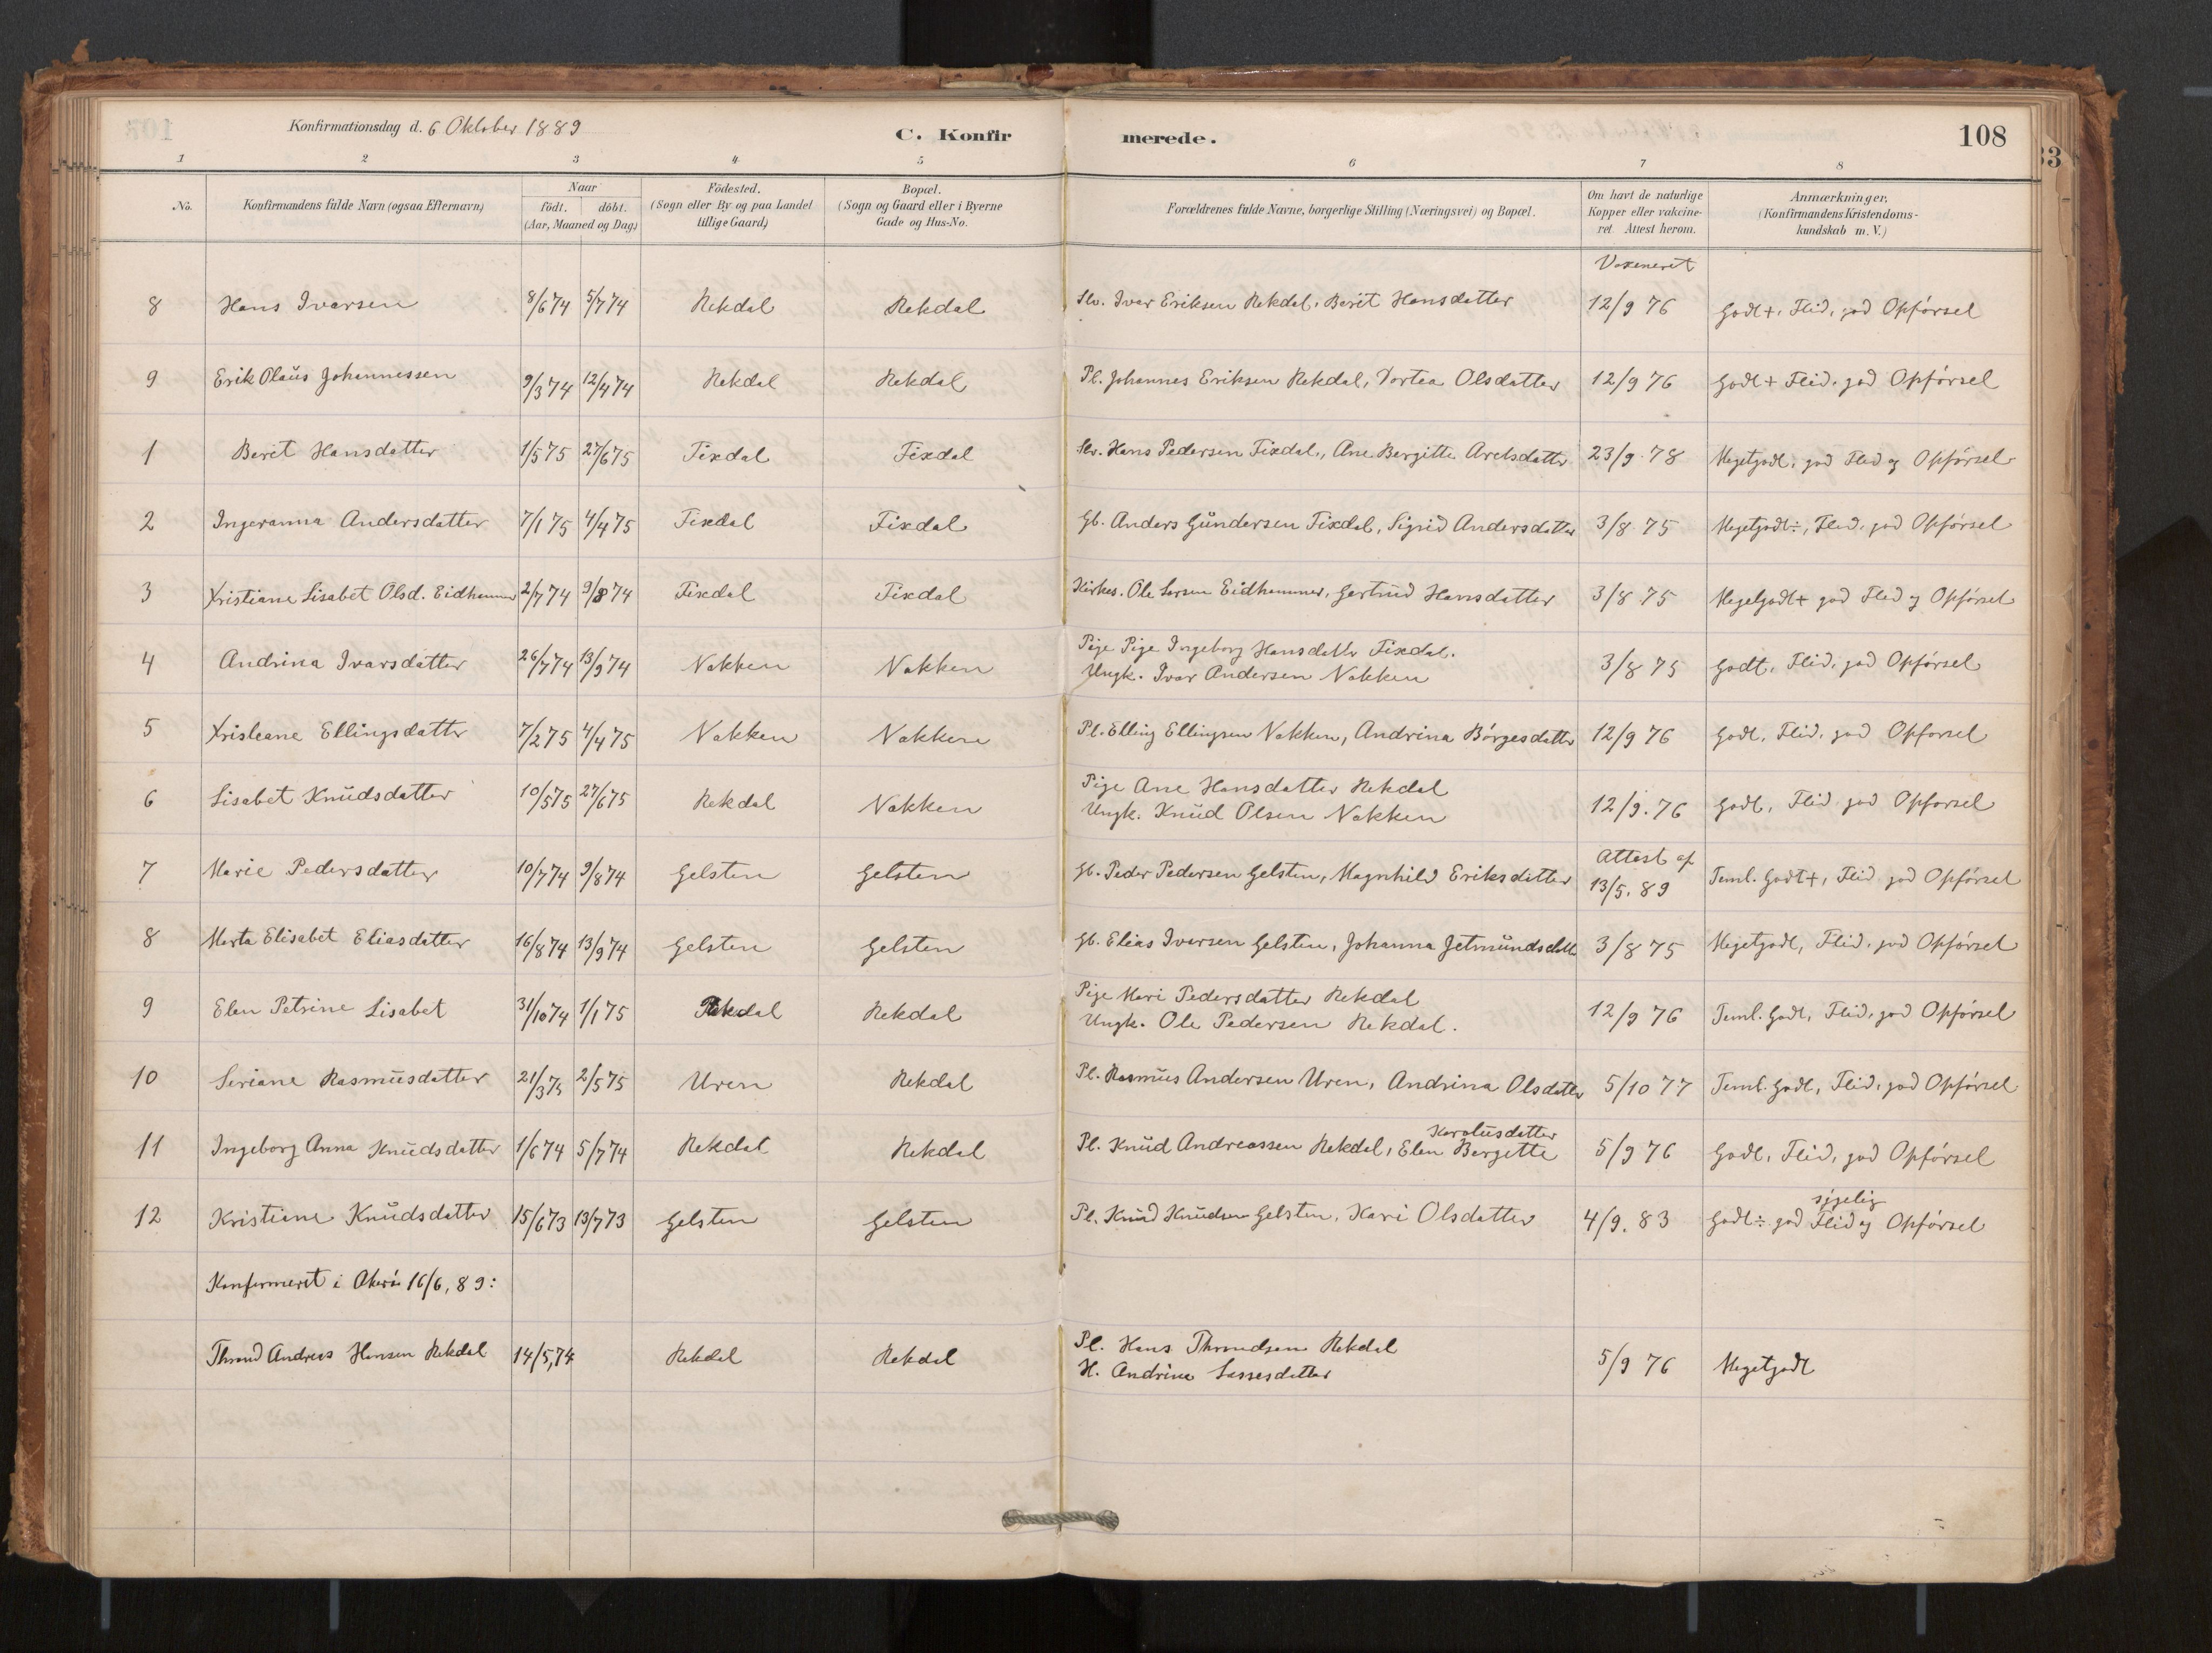 Konfirmationsdag d. 6 Oktober 1889
C. Konfirmerede.
108
1 2 3 4 5 6 7 8
No. Konfirmandens fulde Navn (ogsaa Efternavn) Naar födt. döbt. (Aar, Maaned og Dag) Födested. (Sogn eller By og paa Landet tillige Gaard) Bopæl. (Sogn og Gaard eller i Byerne Gade og Hus-No. Forældrenes fulde Navne, borgerlige Stilling (Næringsvei) og Bopæl. Om havt de naturlige Kopper eller vakcineret Attest herom. Anmærkninger, (Konfirmandens Kristendomskundskab m. V.)
Vaxeneret
8 Hans Ivarsen 8/6 74 5/7 74 Rekdal Rekdal Slv. Ivar Eriksen Rekdal, Berit Hansdatter 12/9 76 Godt+, Flid, god Opförsel
9 Erik Olaus Johannessen 9/3 74 12/4 74 Rekdal Rekdal Pl. Johannes Eriksen Rekdal, Dortea Olsdatter 12/9 76 Godt+ Flid, god Opförsel
1 Berit Hansdatter 1/5 75 27/6 75 Fixdal Fixdal Slv. Hans Pedersen Fixdal, Ane Bergitte Arelsdattr 23/9 78 Megetgodt, god Flid og Opförsel
2 Ingeranna Andersdatter 7/1 75 4/4 75 Fixdal Fixdal Gb. Anders Gundersen Fixdal, Sigrid Andersdatter 3/8 75 Megetgodt÷, Flid, god Opförsel
3 Xristiane Lisabet Olsd. Eidhammer 2/7 74 9/8 74 Fixdal Fixdal Kirkes. Ole Larsen Eidhammer, Gertrud Hansdatter 3/8 75 Megetgodt+ god Flid og Opförsel
4 Andrina Ivarsdatter 26/7 74 13/9 74 Nakken Nakken Pige Pige Ingeborg Hansdattr Fixdal.
Ungk. Ivar Andersen Nakken 3/8 75 Godt, Flid, god Opförsel
5 Xristiane Ellingsdattr 7/2 75 4/4 75 Nakken Nakken Pl. Elling Ellingsen Nakken, Andrina Börgesdattr 12/9 76 Godt, Flid, god Opforsel
6 Lisabet Knudsdatter 10/5 75 27/6 75 Rekdal Nakken Pige Ane Hansdatter Rekdal
Ungk. Knud Olsen Nakken 12/9. 76 Godt, Flid god Opforsel
7 Marie Pedersdatter 10/7 74 9/8 74 Gelsten Gelsten Gb. Peder Pedersen Gelsten, Magnhild Eriksdatter Attest af 13/5. 89 Teml. Godt+, Flid god Opförsel
8 Marta Elisabet Eliasdatter 16/8 74 13/9 74 Gelsten Gelsten Gb. Elias Iversen Gelsten, Johanna Jetmundsdattr 3/8 75 Megetgodt, Flid, god Opförsel
9 Elen Petrine Lisabet 31/10 74 1/1 75 Rekdal Rekdal Pige Mari Pedersdatter Rekdal
Ungk. Ole Pedersen Rekdal. 12/9 76 Teml. Godt, Flid, god Opförsel
10 Seriane Rasmusdatter 21/3 75 2/5 75 Uren Rekdal Pl. Rasmus Andersen Uren, Andrina Olsdatter 5/10 77 Teml. Godt, Flid, god Opförsel
11 Ingeborg Anna Knudsdatter 1/6 74 5/7 74 Rekdal Rekdal Pl. Knud Andreassen Rekdal, Elen Bergitte Karolusdatter 5/9 76 Godt, Flid, god Opförsel
12 Kristiane Knudsdatter 15/6 73 13/7 73 Gelsten Gelsten Pl. Knud Knudsen Gelsten, Kari Olsdatter 4/9. 83 Godt÷ god Flid og Opförsel
Konfirmeret i Akerö 16/6, 89:
Thrond Andreas Hansen Rekdal 14/5, 74 Rekdal Rekdal Pl. Hans Throndsen Rekdal
H. Andrine Lassesdatter 5/9 76 Megetgodt